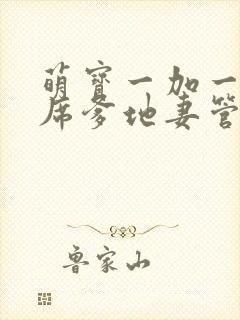 萌宝一加一
席爹地妻管
鲁家山